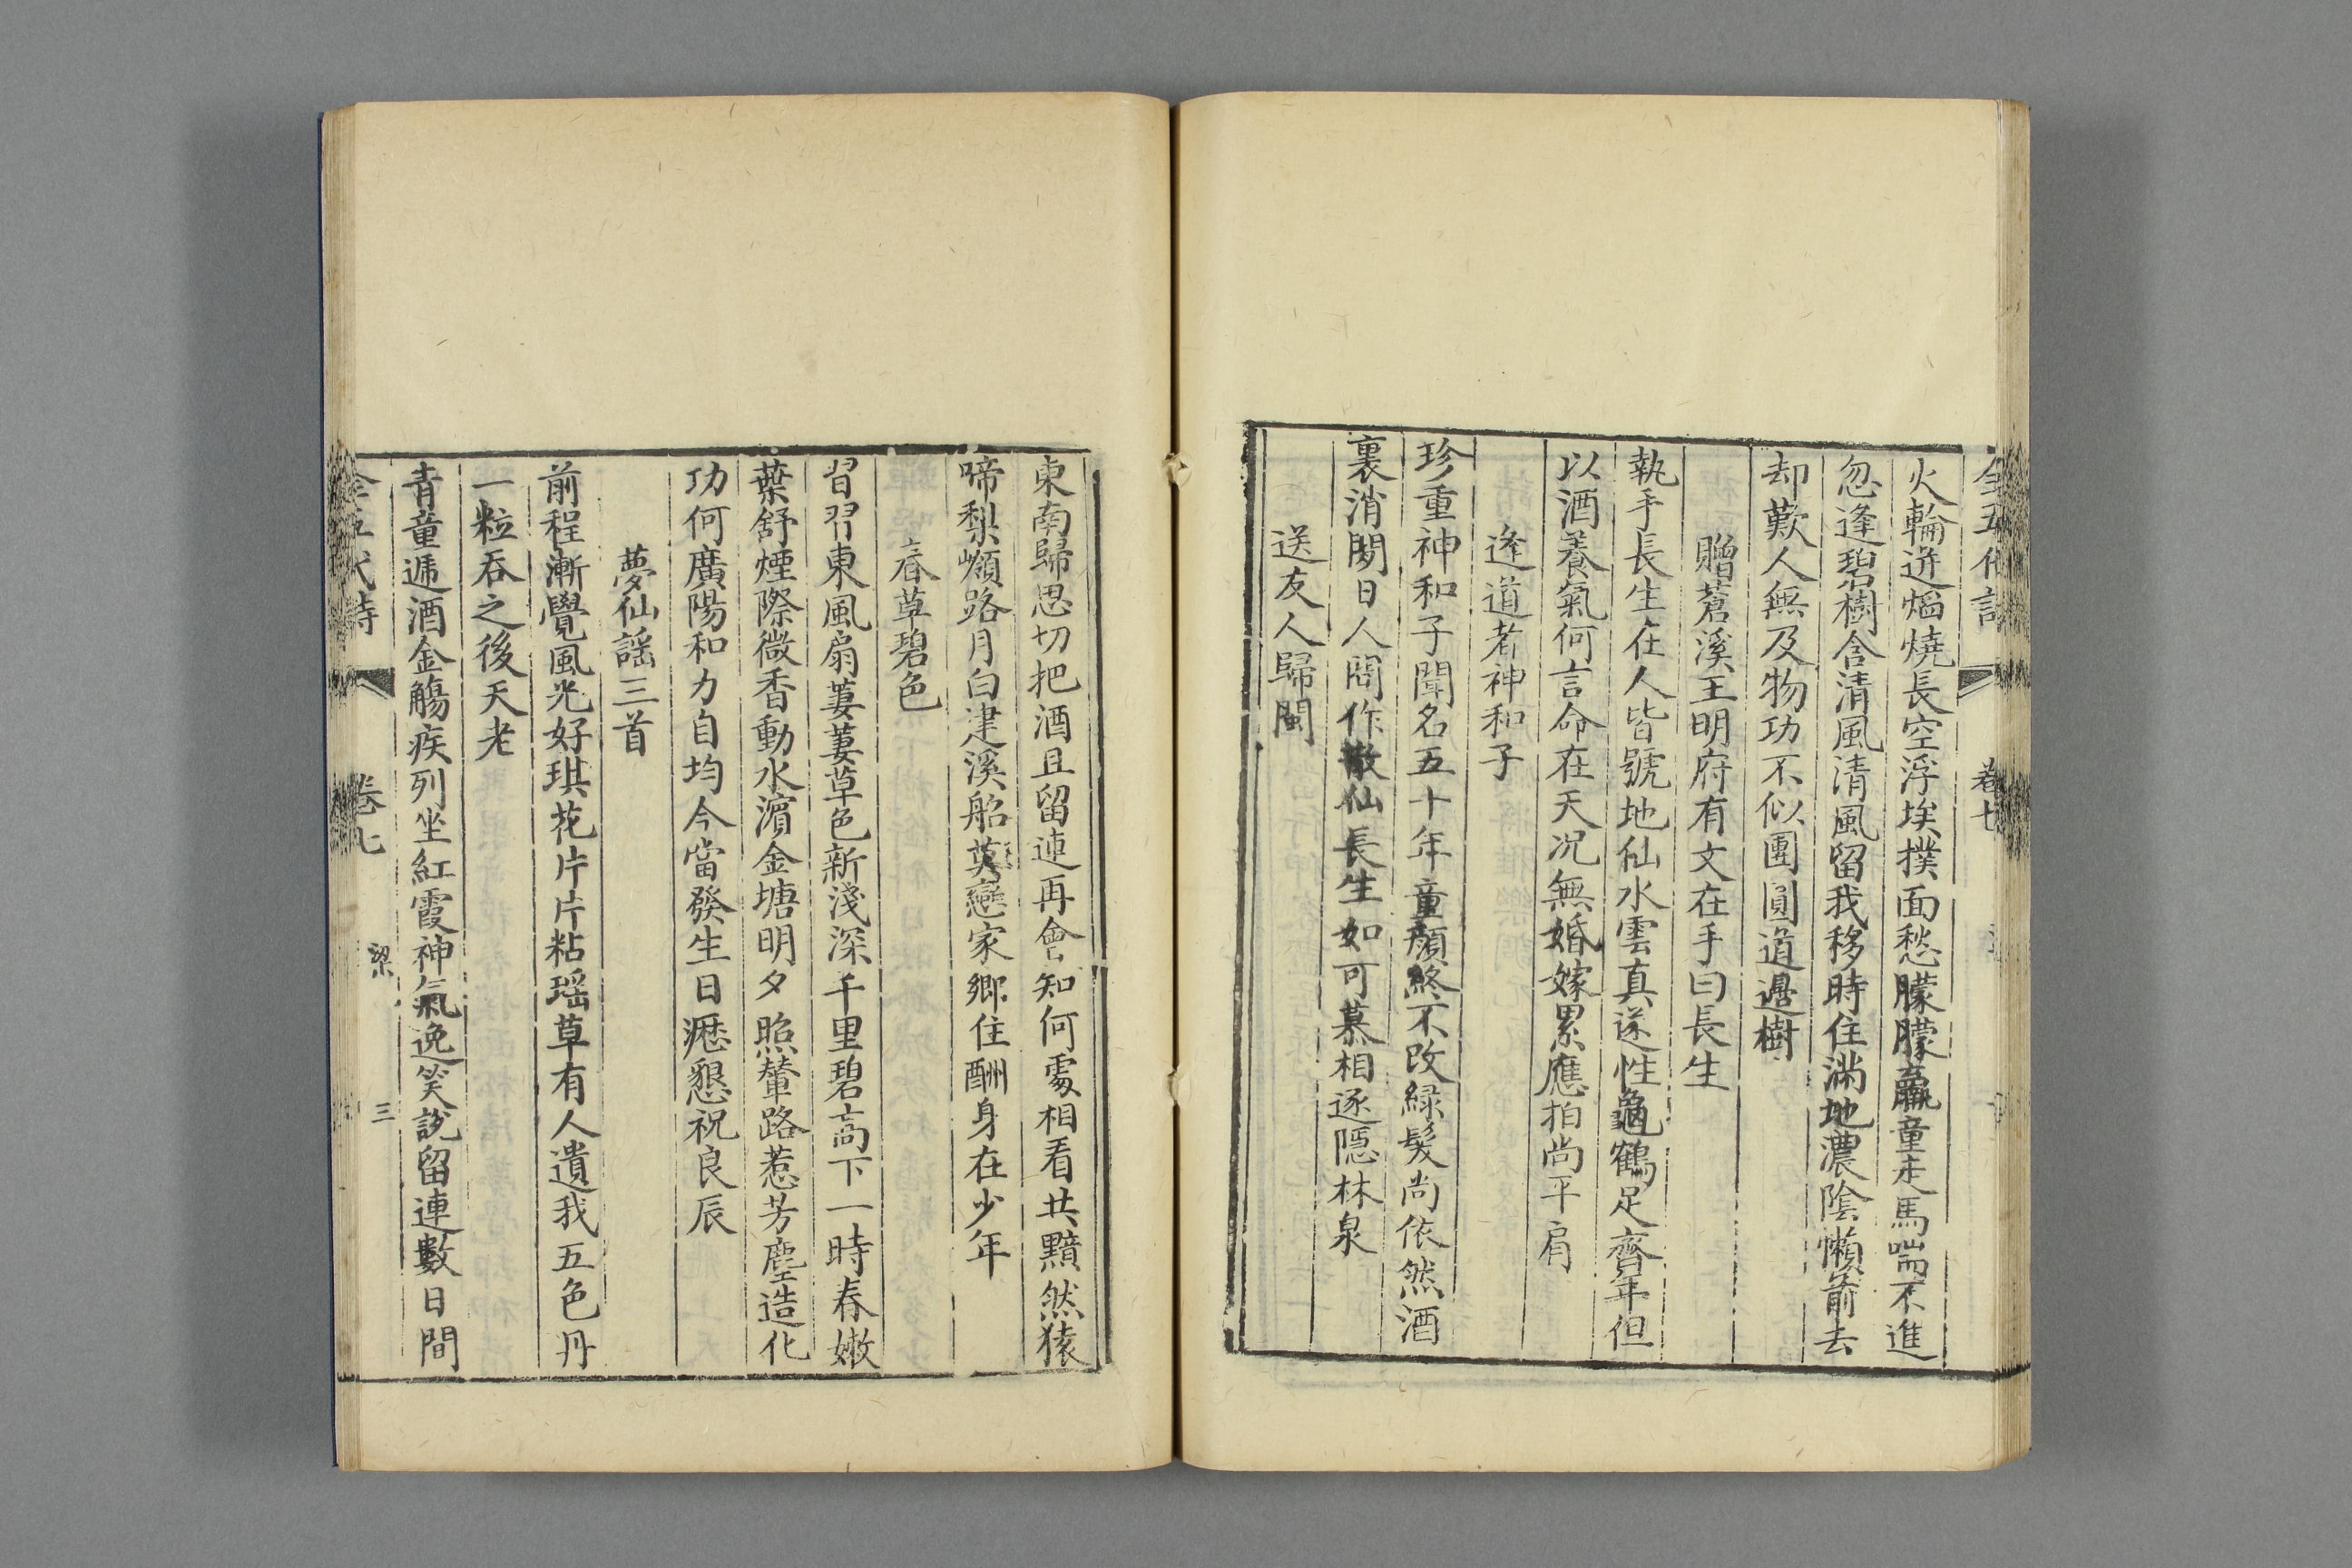 全五代詩 卷七
火輪迸熖燒長空浮埃撲面愁朦朦羸童走馬喘不進
忽逢碧樹含清風清風留我移時住滿地濃陰懶前去
却歎人無及物功不似團圓道邊樹
贈蒼溪王明府有文在手曰長生
執手長生在人皆號地仙水雲真遂性龜鶴足齊年但
以酒養氣何言命在天况無婚嫁累應拍尚平肩
逢道者神和子
珍重神和子聞名五十年童顏終不改緑髮尚依然酒
裏消閑日人間作散仙長生如可慕相逐隱林泉
送友人歸閩
東南歸思切把酒且留連再會知何處相看共黯然猿
啼梨嶺路月白建溪船莫戀家鄉住酬身在少年
春草碧色
習習東風扇萋萋草色新淺深千里碧高下一時春嫩
葉舒煙際微香動水濵金塘明夕照輦路惹芳塵造化
功何廣陽和力自均今當發生日瀝懇祝良辰
夢仙謡三首
前程漸覺風光好琪花片片粘瑶草有人遺我五色丹
一粒吞之後天老
青童遞酒金觴疾列坐紅霞神氣逸笑說留連數日間
全五代詩 卷七 梁 三